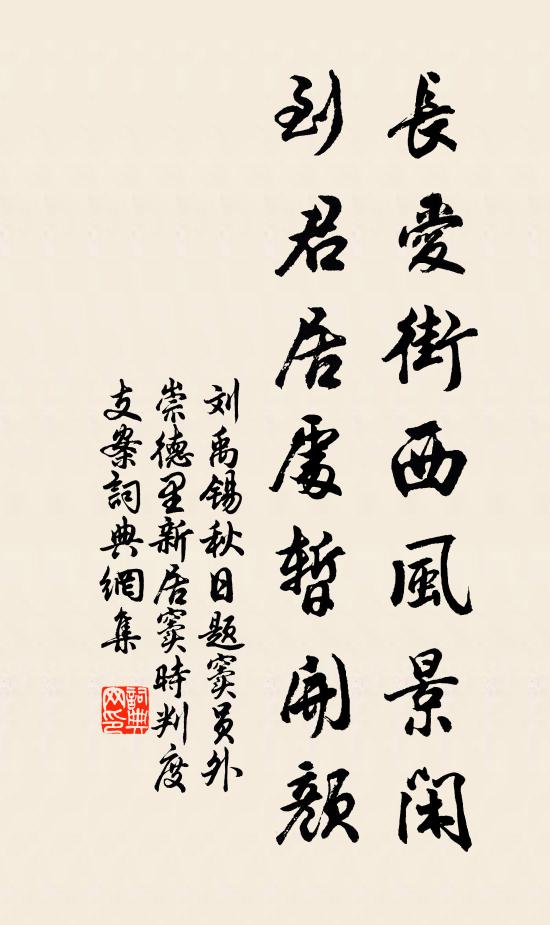 長愛街西風景閑
到君居處暫開顏
刘禹锡秋日题窦員外
崇德里新居窦時判度
支案詞典網集
詞典网印